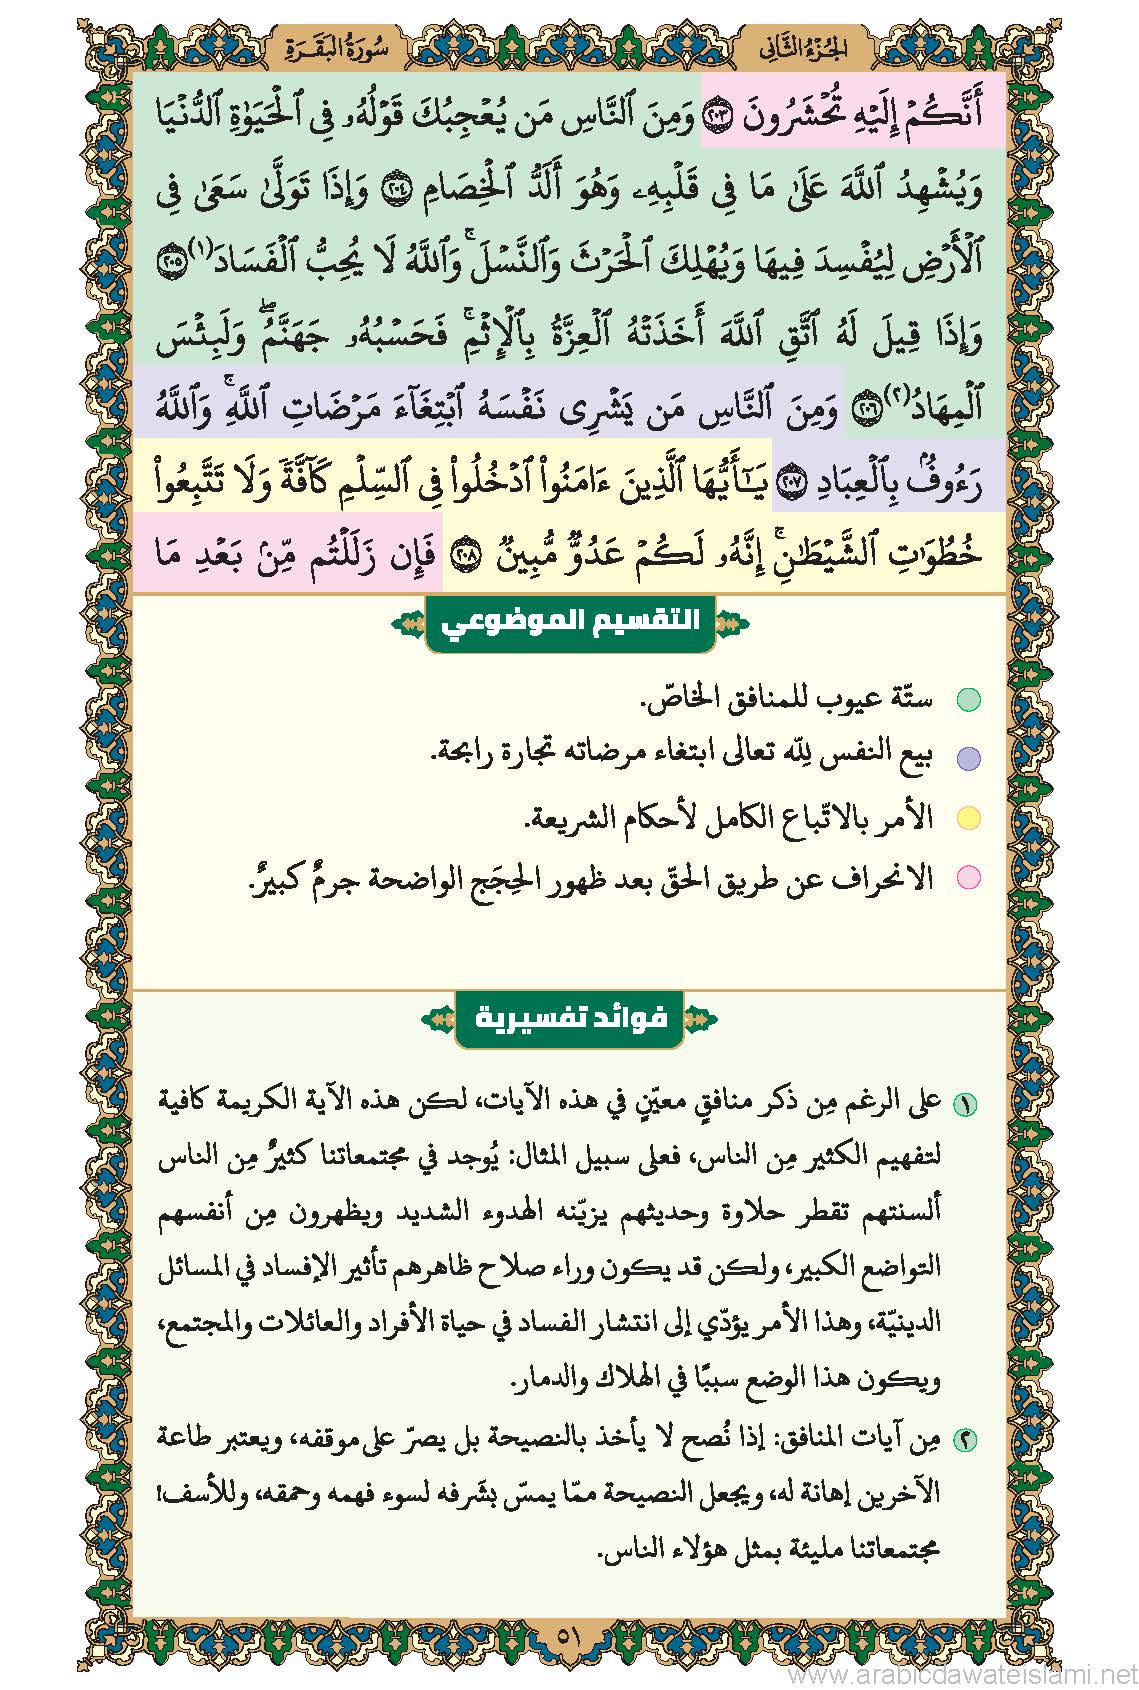 الجُزْءُ الثَّانِي
سُورَةُ الْبَقَرَةِ
أَنَّكُمْ إِلَيْهِ تُحْشَرُونَ ٢٠٣ وَمِنَ ٱلنَّاسِ مَن يُعْجِبُكَ قَوْلُهُۥ فِى ٱلْحَيَوٰةِ ٱلدُّنْيَا
وَيُشْهِدُ ٱللَّهَ عَلَىٰ مَا فِى قَلْبِهِۦ وَهُوَ أَلَدُّ ٱلْخِصَامِ ٢٠٤ وَإِذَا تَوَلَّىٰ سَعَىٰ فِى
ٱلْأَرْضِ لِيُفْسِدَ فِيهَا وَيُهْلِكَ ٱلْحَرْثَ وَٱلنَّسْلَ ۚ وَٱللَّهُ لَا يُحِبُّ ٱلْفَسَادَ(١) ٢٠٥
وَإِذَا قِيلَ لَهُ ٱتَّقِ ٱللَّهَ أَخَذَتْهُ ٱلْعِزَّةُ بِٱلْإِثْمِ ۚ فَحَسْبُهُۥ جَهَنَّمُ ۖ وَلَبِئْسَ
ٱلْمِهَادُ(٢) ٢٠٦ وَمِنَ ٱلنَّاسِ مَن يَشْرِى نَفْسَهُ ٱبْتِغَآءَ مَرْضَاتِ ٱللَّهِ ۚ وَٱللَّهُ
رَءُوفٌۢ بِٱلْعِبَادِ ٢٠٧ يَـٰٓأَيُّهَا ٱلَّذِينَ ءَامَنُوا۟ ٱدْخُلُوا۟ فِى ٱلسِّلْمِ كَآفَّةً وَلَا تَتَّبِعُوا۟
خُطُوَٰتِ ٱلشَّيْطَـٰنِ ۚ إِنَّهُۥ لَكُمْ عَدُوٌّ مُّبِينٌ ٢٠٨ فَإِن زَلَلْتُم مِّنۢ بَعْدِ مَا
التقسيم الموضوعي
ستّة عيوب للمنافق الخاصّ.
بيع النفس لله تعالى ابتغاء مرضاته تجارة رابحة.
الأمر بالاتّباع الكامل لأحكام الشريعة.
الانحراف عن طريق الحقّ بعد ظهور الحِجَج الواضحة جرمٌ كبيرٌ.
فوائد تفسيرية
١ على الرغم مِن ذكر منافقٍ معيّنٍ في هذه الآيات، لكن هذه الآية الكريمة كافية
لتفهيم الكثير مِن الناس، فعلى سبيل المثال: يُوجد في مجتمعاتنا كثيرٌ مِن الناس
ألسنتهم تقطر حلاوة وحديثهم يزيّنه الهدوء الشديد ويظهرون مِن أنفسهم
التواضع الكبير، ولكن قد يكون وراء صلاح ظاهرهم تأثير الإفساد في المسائل
الدينيّة، وهذا الأمر يؤدّي إلى انتشار الفساد في حياة الأفراد والعائلات والمجتمع،
ويكون هذا الوضع سببًا في الهلاك والدمار.
٢ مِن آيات المنافق: إذا نُصح لا يأخذ بالنصيحة بل يصرّ على موقفه، ويعتبر طاعة
الآخرين إهانة له، ويجعل النصيحة ممّا يمسّ بشَرفه لسوء فهمه وحمقه، وللأسف!
مجتمعاتنا مليئة بمثل هؤلاء الناس.
٥١
www.arabicdawateislami.net